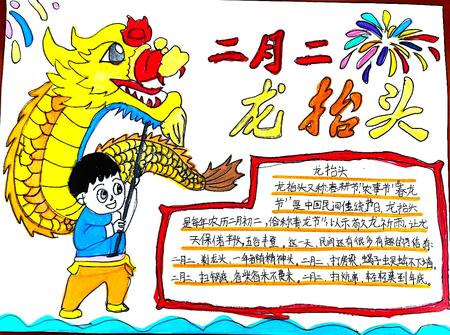 二月二
龙抬头
龙抬头
龙抬头又称春耕节、农事节、春龙
节，是中国民间传统节日。龙抬头
是每年农历二月初二，俗称青龙节，以示敬龙祈雨，让龙
天保佑丰收，五谷丰登。这一天，民间还有很多有趣的习俗：
二月二，剃龙头，一年都有精神头。二月二，打房梁，蝎子出走蛐不下。
二月二，扫炕席，轻轻爽到年底。